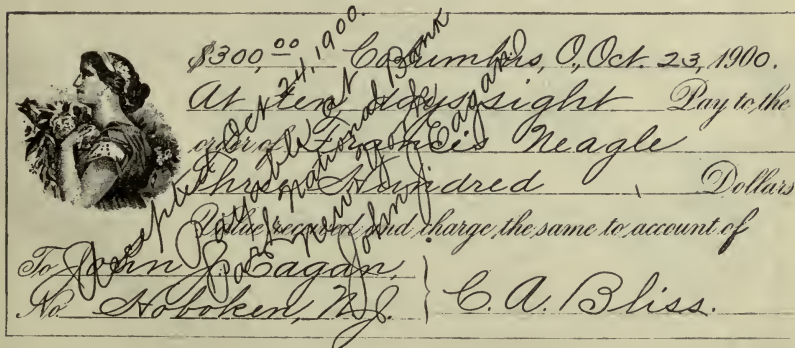 $300,00 Columbus, O., Oct. 23, 1900.
At ten days sight Pay to the
order of Francis Neagle
Three Hundred Dollars
Value received and charge the same to account of
To John J. Eagan,
No. Hoboken, N.J. } C. A. Bliss.
Accepted Oct. 24, 1900.
Payable at
Park National Bank
New York
John J. Eagan